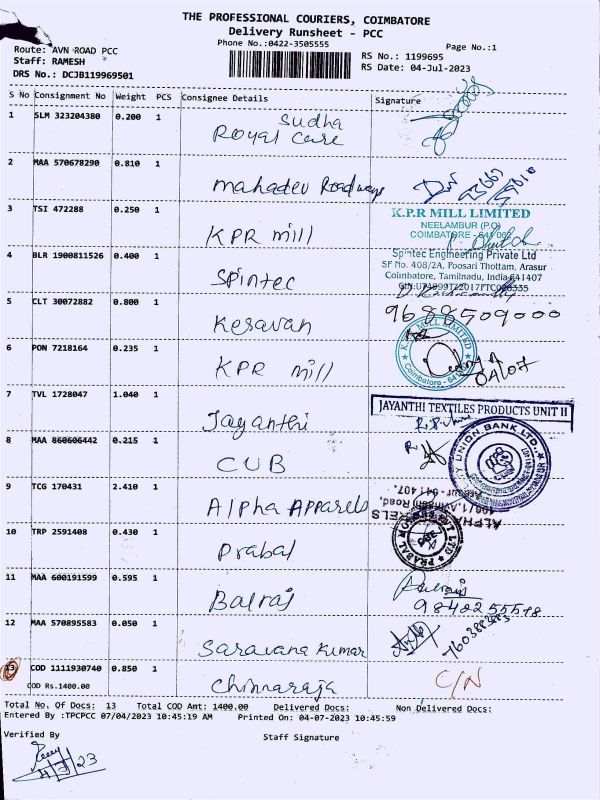 THE PROFESSIONAL COURIERS, COIMBATORE
Delivery Runsheet - PCC
Phone No.:0422-3505555
Page No.:1
Route: AVN ROAD PCC
RS No.: 1199695
Staff: RAMESH
RS Date: 04-Jul-2023
DRS No.: DCJB119969501
S No Consignment No Weight PCS Consignee Details Signature
1 SLM 323204380 0.200 1 Sudha
Royal Care
2 MAA 570678290 0.810 1 Mahadev Roadways
3 TSI 472288 0.250 1 KPR Mill
K.P.R MILL LIMITED
NEELAMBUR (P.O)
COIMBATORE - 641 062
4 BLR 1900811526 0.400 1 Spintec
Spintec Engineering Private Ltd
SF No. 408/2A, Poosari Thottam, Arasur
Coimbatore, Tamilnadu, India 641407
5 CLT 30072882 0.800 1 Kesavan
9688509000
6 PON 7218164 0.235 1 KPR Mill
K.P.R. MILL LIMITED
7 TVL 1728047 1.040 1 Jayanthi
JAYANTHI TEXTILES PRODUCTS UNIT II
8 MAA 860606442 0.215 1 CUB
UNION BANK LTD.
9 TCG 170431 2.410 1 Alpha Apparels
10 TRP 2591408 0.430 1 Prabal
11 MAA 600191599 0.595 1 Balraj
12 MAA 570895583 0.050 1 Saravana Kumar
7603883883
13 COD 1111930740 0.850 1 Chinnaraja
C/N
COD Rs.1400.00
Total No. Of Docs: 13 Total COD Amt: 1400.00 Delivered Docs: Non Delivered Docs:
Entered By :TPCPCC 07/04/2023 10:45:19 AM Printed On: 04-07-2023 10:45:59
Verified By
Staff Signature